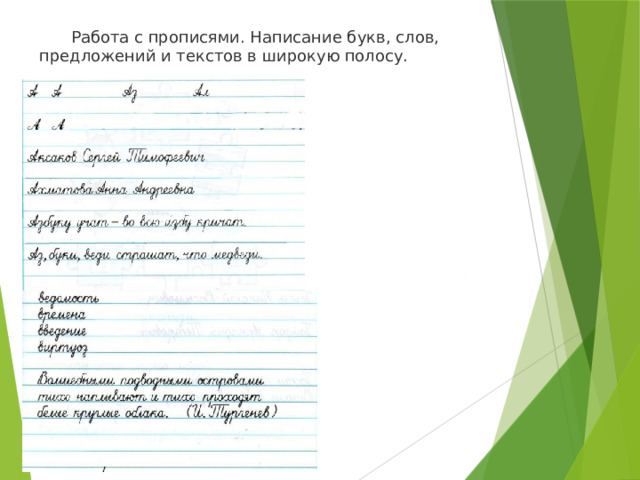 Работа с прописями. Написание букв, слов,
предложений и текстов в широкую полосу.
А А Аз Ал
А А
Аксаков Сергей Тимофеевич
Ахматова Анна Андреевна
Азбуку учат – во всю избу кричат.
Аз, буки, веди страшат, что медведи.
ведомость
времена
введение
виртуоз
Волшебными подводными островами
тихо наплывают и тихо проходят
белые круглые облака. (И. Тургенев)